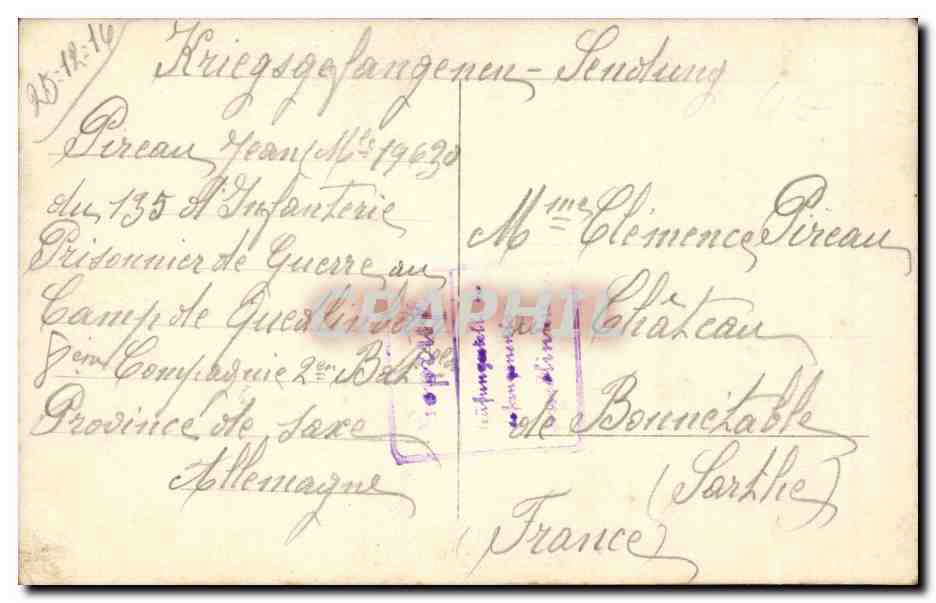 25-12-16
Kriegsgefangenen - Sendung
Pireau Jean Mle 19630
du 135 d'Infanterie
Prisonnier de Guerre au
Camp de Quedlinbourg
8ème Compagnie 2em Bat
Province de Saxe
Allemagne
Mme Clémence Pireau
au Château
de Bonnétable
(Sarthe)
(France)
CPAPHIL
Geprüft